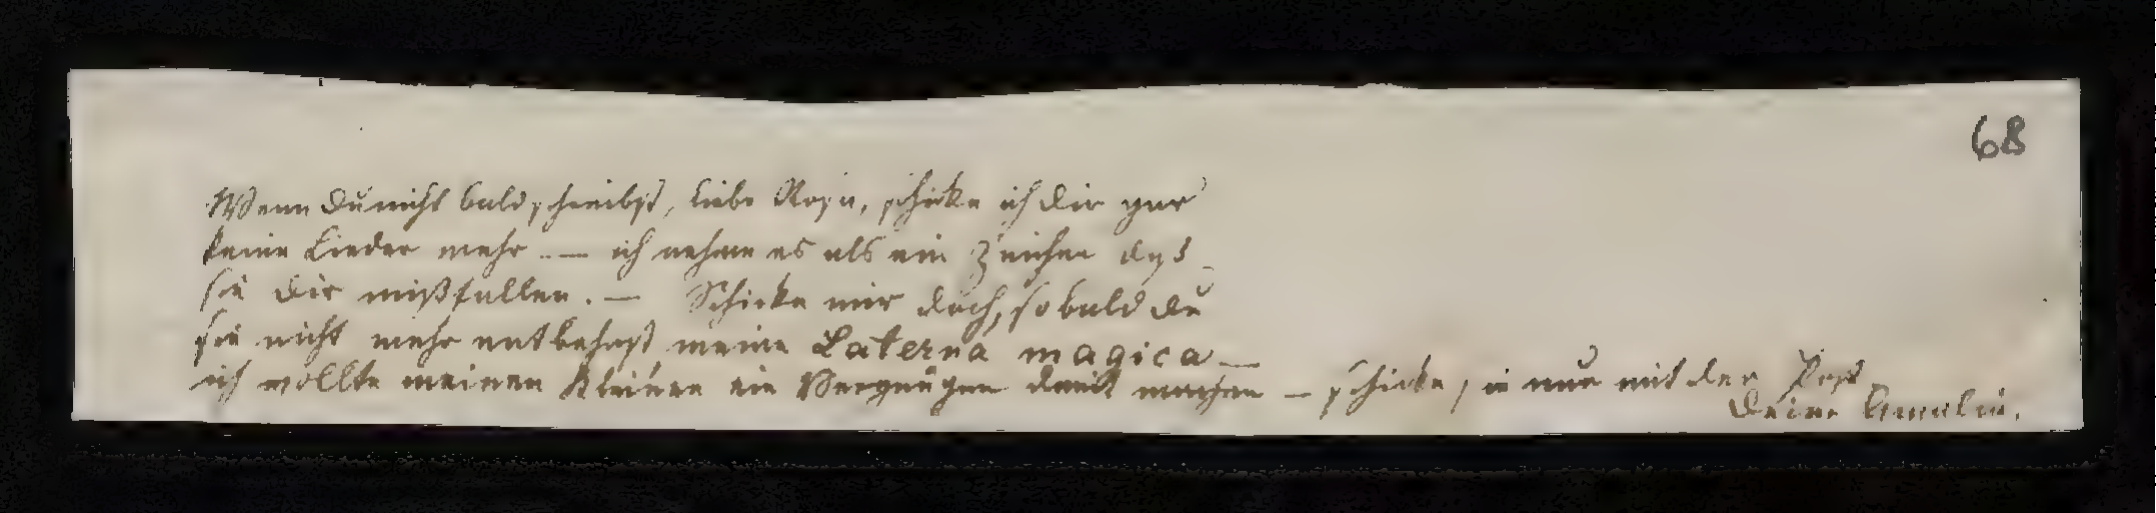 68
Wenn Du nicht bald schreibst, liebe Rosa, schicke ich Dir gar
keine Lieder mehr — ich nehme es als ein Zeichen daß
sie Dir mißfallen. — Schicke mir doch, sobald Du
sie nicht mehr entbehrst meine Laterna magica —
ich wollte meinen Kleinen ein Vergnügen damit machen — schicke sie nur mit der Post
Deine Amalie.